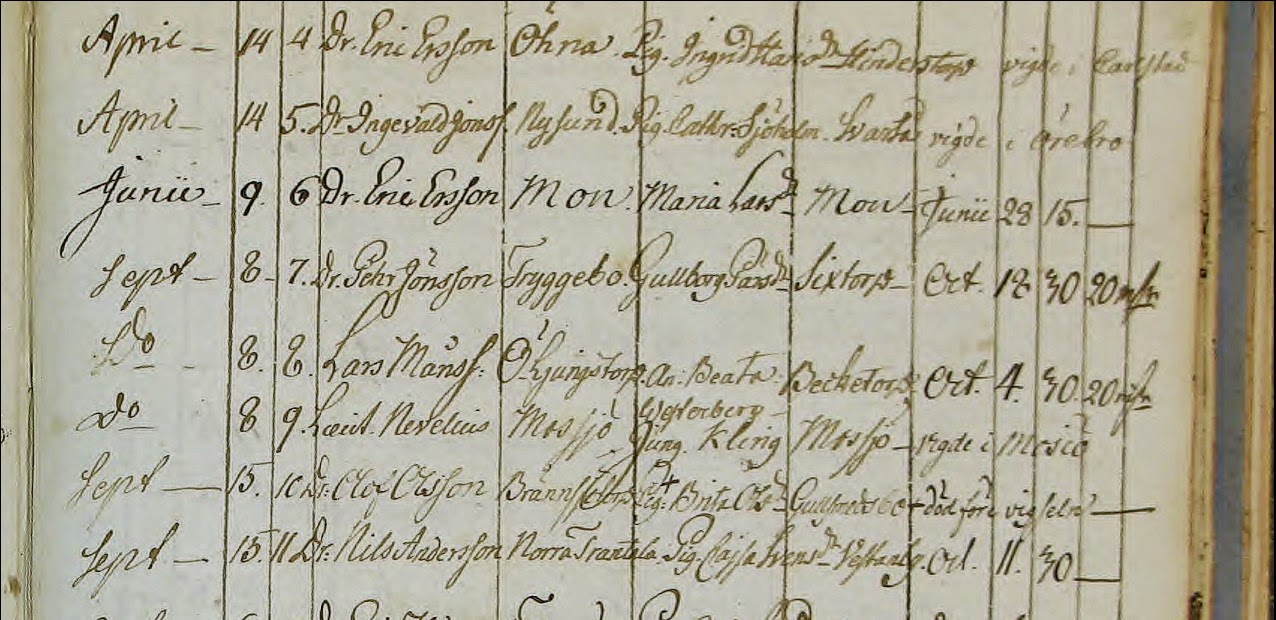 April - 14 4 Dr. Eric Ersson Öhna. Pig. Ingrid Hansdr Hinderstorp vigde i Carlstad
April - 14 5. Dr. Ingevald Jonss. Nysund. Pig. Cathr: Sjöholm. Svartå vigde i Örebro
Junii - 9. 6 Dr. Eric Ersson Mon. Maria Larsdr Mon - Junii 28 15. —
Sept - 8 - 7. Dr. Pehr Jönsson Tryggebo. Gullborg Pärsdr Sixtorp - Oct. 18 30 20
Do - 8. 8. Lars Månss: Ö. Ljungstorp. An. Beata Becketorp Oct. 4. 30. 20
Do 8 9. Lieut. Nerelius Mossjö Westerberg
Jung. Kling Mossjö - vigde i Mosjö
Sept — 15. 10 Dr. Olof Olsson Pig. Brita Olsdr död före vigseln —
Sept - 15. 11 Dr. Nils Andersson Norra Pig. Cajsa Svensdr Oct. 11. 30 —